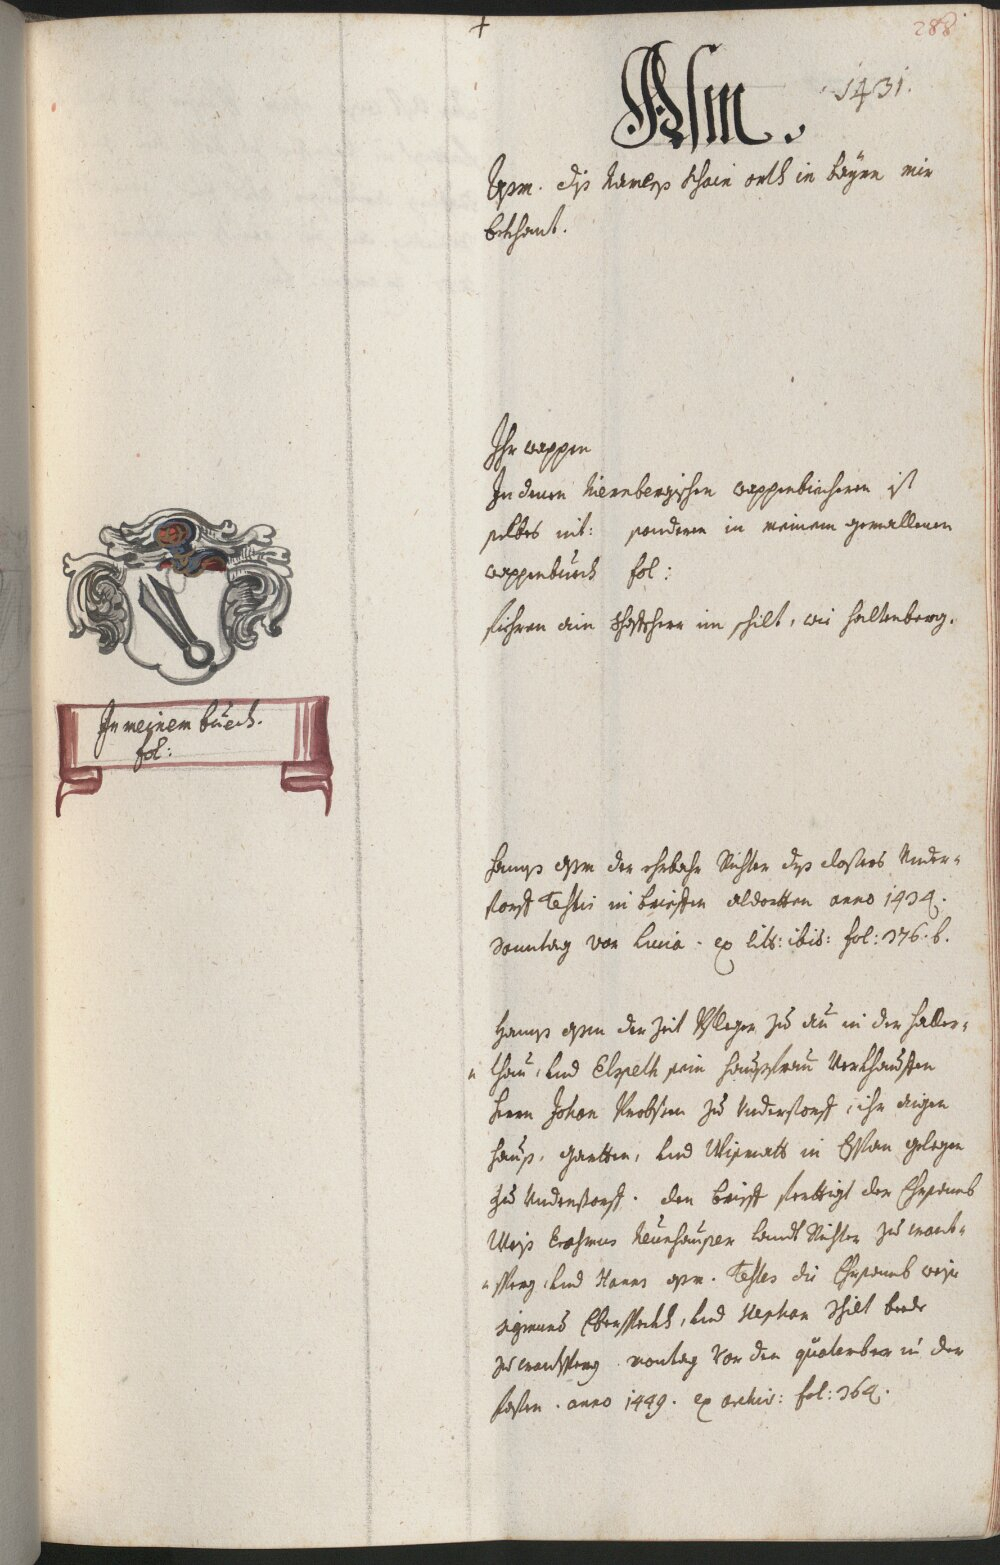 288
Asm.
1431.
Asm. diss Namens khain orth in Bayrn mir
bekhant.
Ihr wappen
In denen Niernbergischen wappenbiecheren ist
selbes nit: sonderen in meinem gemallenen
wappenbuech fol:
fiehren ain schaffschere im schilt, wie Haltenberg.
In meinem buech.
fol:
Hanns Asm der ehrbahr Richter dess closters Under-
storff Testis in brieffen aldorten anno 1434.
Sonntag vor Lucia. ex lit: ibid: fol: 376. b.
Hanns Asm der zeit Pfleger zu Au in der Haller-
thau, und Elspeth sein haussfrau verkhaufften
herrn Johan Probsten zu Understorff, ihr aigen
hauss, gartten, und Wissmatt in Essen gelegen
zu Understorff. den brieff ferttigt der Ehrsamb
Weiss Erasmus Neunhauser landt Richter zu crants-
perg, und Hanns Asm. Testes die Ehrsamb weise
Sigmund Eberspekh, und Stephan Schilt beede
zu crantsperg. montag vor den quatember in der
fasten. anno 1449. ex archiv: fol: 364.